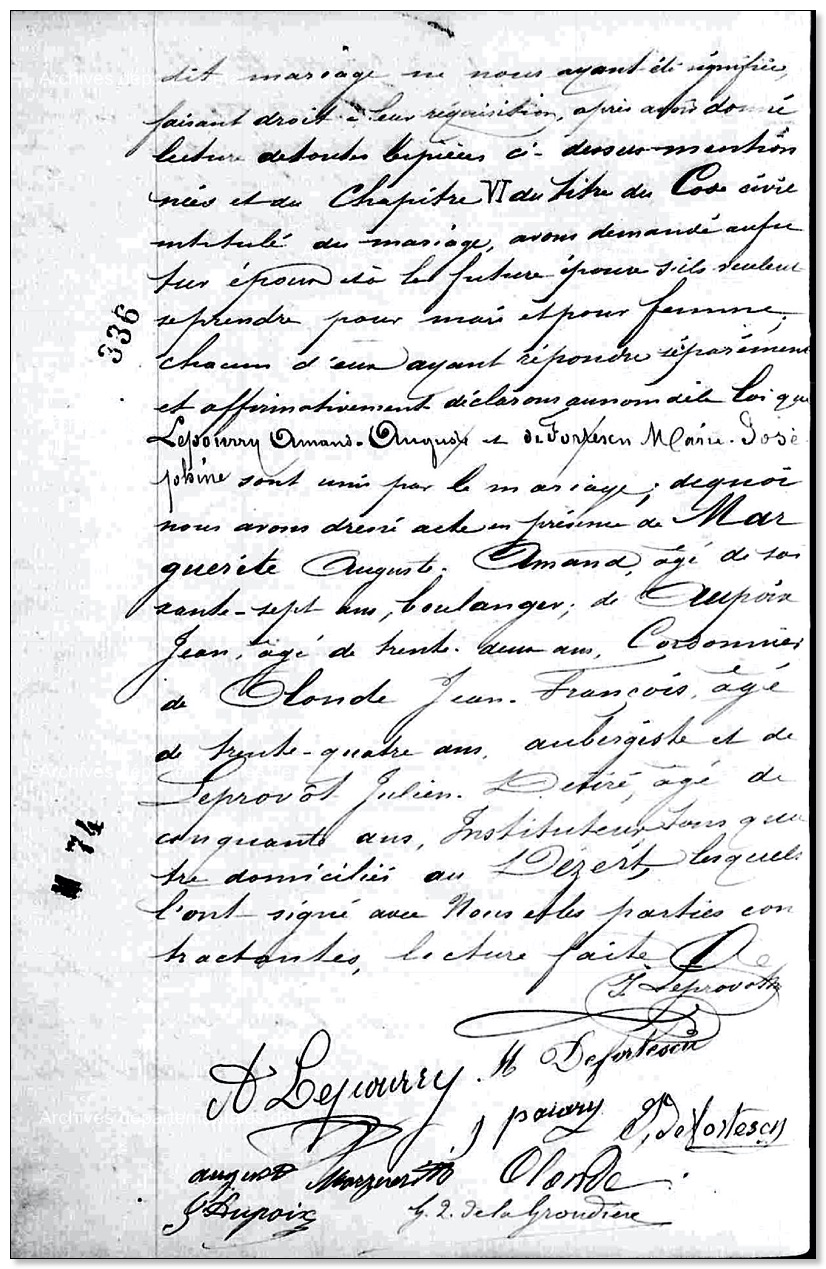 dit mariage ne nous ayant été signifiée,
faisant droit à leur réquisition, après avoir donné
lecture de toutes les pièces ci-dessus mention
nées et du Chapitre VI du titre du Code civil
intitulé du mariage, avons demandé au fu
tur époux et à la future épouse s'ils veulent
se prendre pour mari et pour femme,
chacun d'eux ayant répondu séparément
et affirmativement déclarons au nom de la loi que
Lepourry Amand-Auguste et de Fortescu Marie-José
phine sont unis par le mariage; de quoi
nous avons dressé acte en présence de Mar
guerite Auguste-Amand, âgé de soi
xante-sept ans, boulanger; de Dupoix
Jean, âgé de trente-deux ans, Cordonnier
de Olonde Jean-François, âgé
de trente-quatre ans, aubergiste et de
Leprovôt Julien-Désiré, âgé de
cinquante ans, Instituteur tous qua
tre domiciliés au Dézert, lesquels
l'ont signé avec Nous et les parties con
tractantes, lecture faite
J Leprovôt
A Lepourry M Defortescu
J pourry De Fortescu
august Marguerite Olonde
J Dupoix G. 2. de la Grondière
336
M 74
Archives départementales